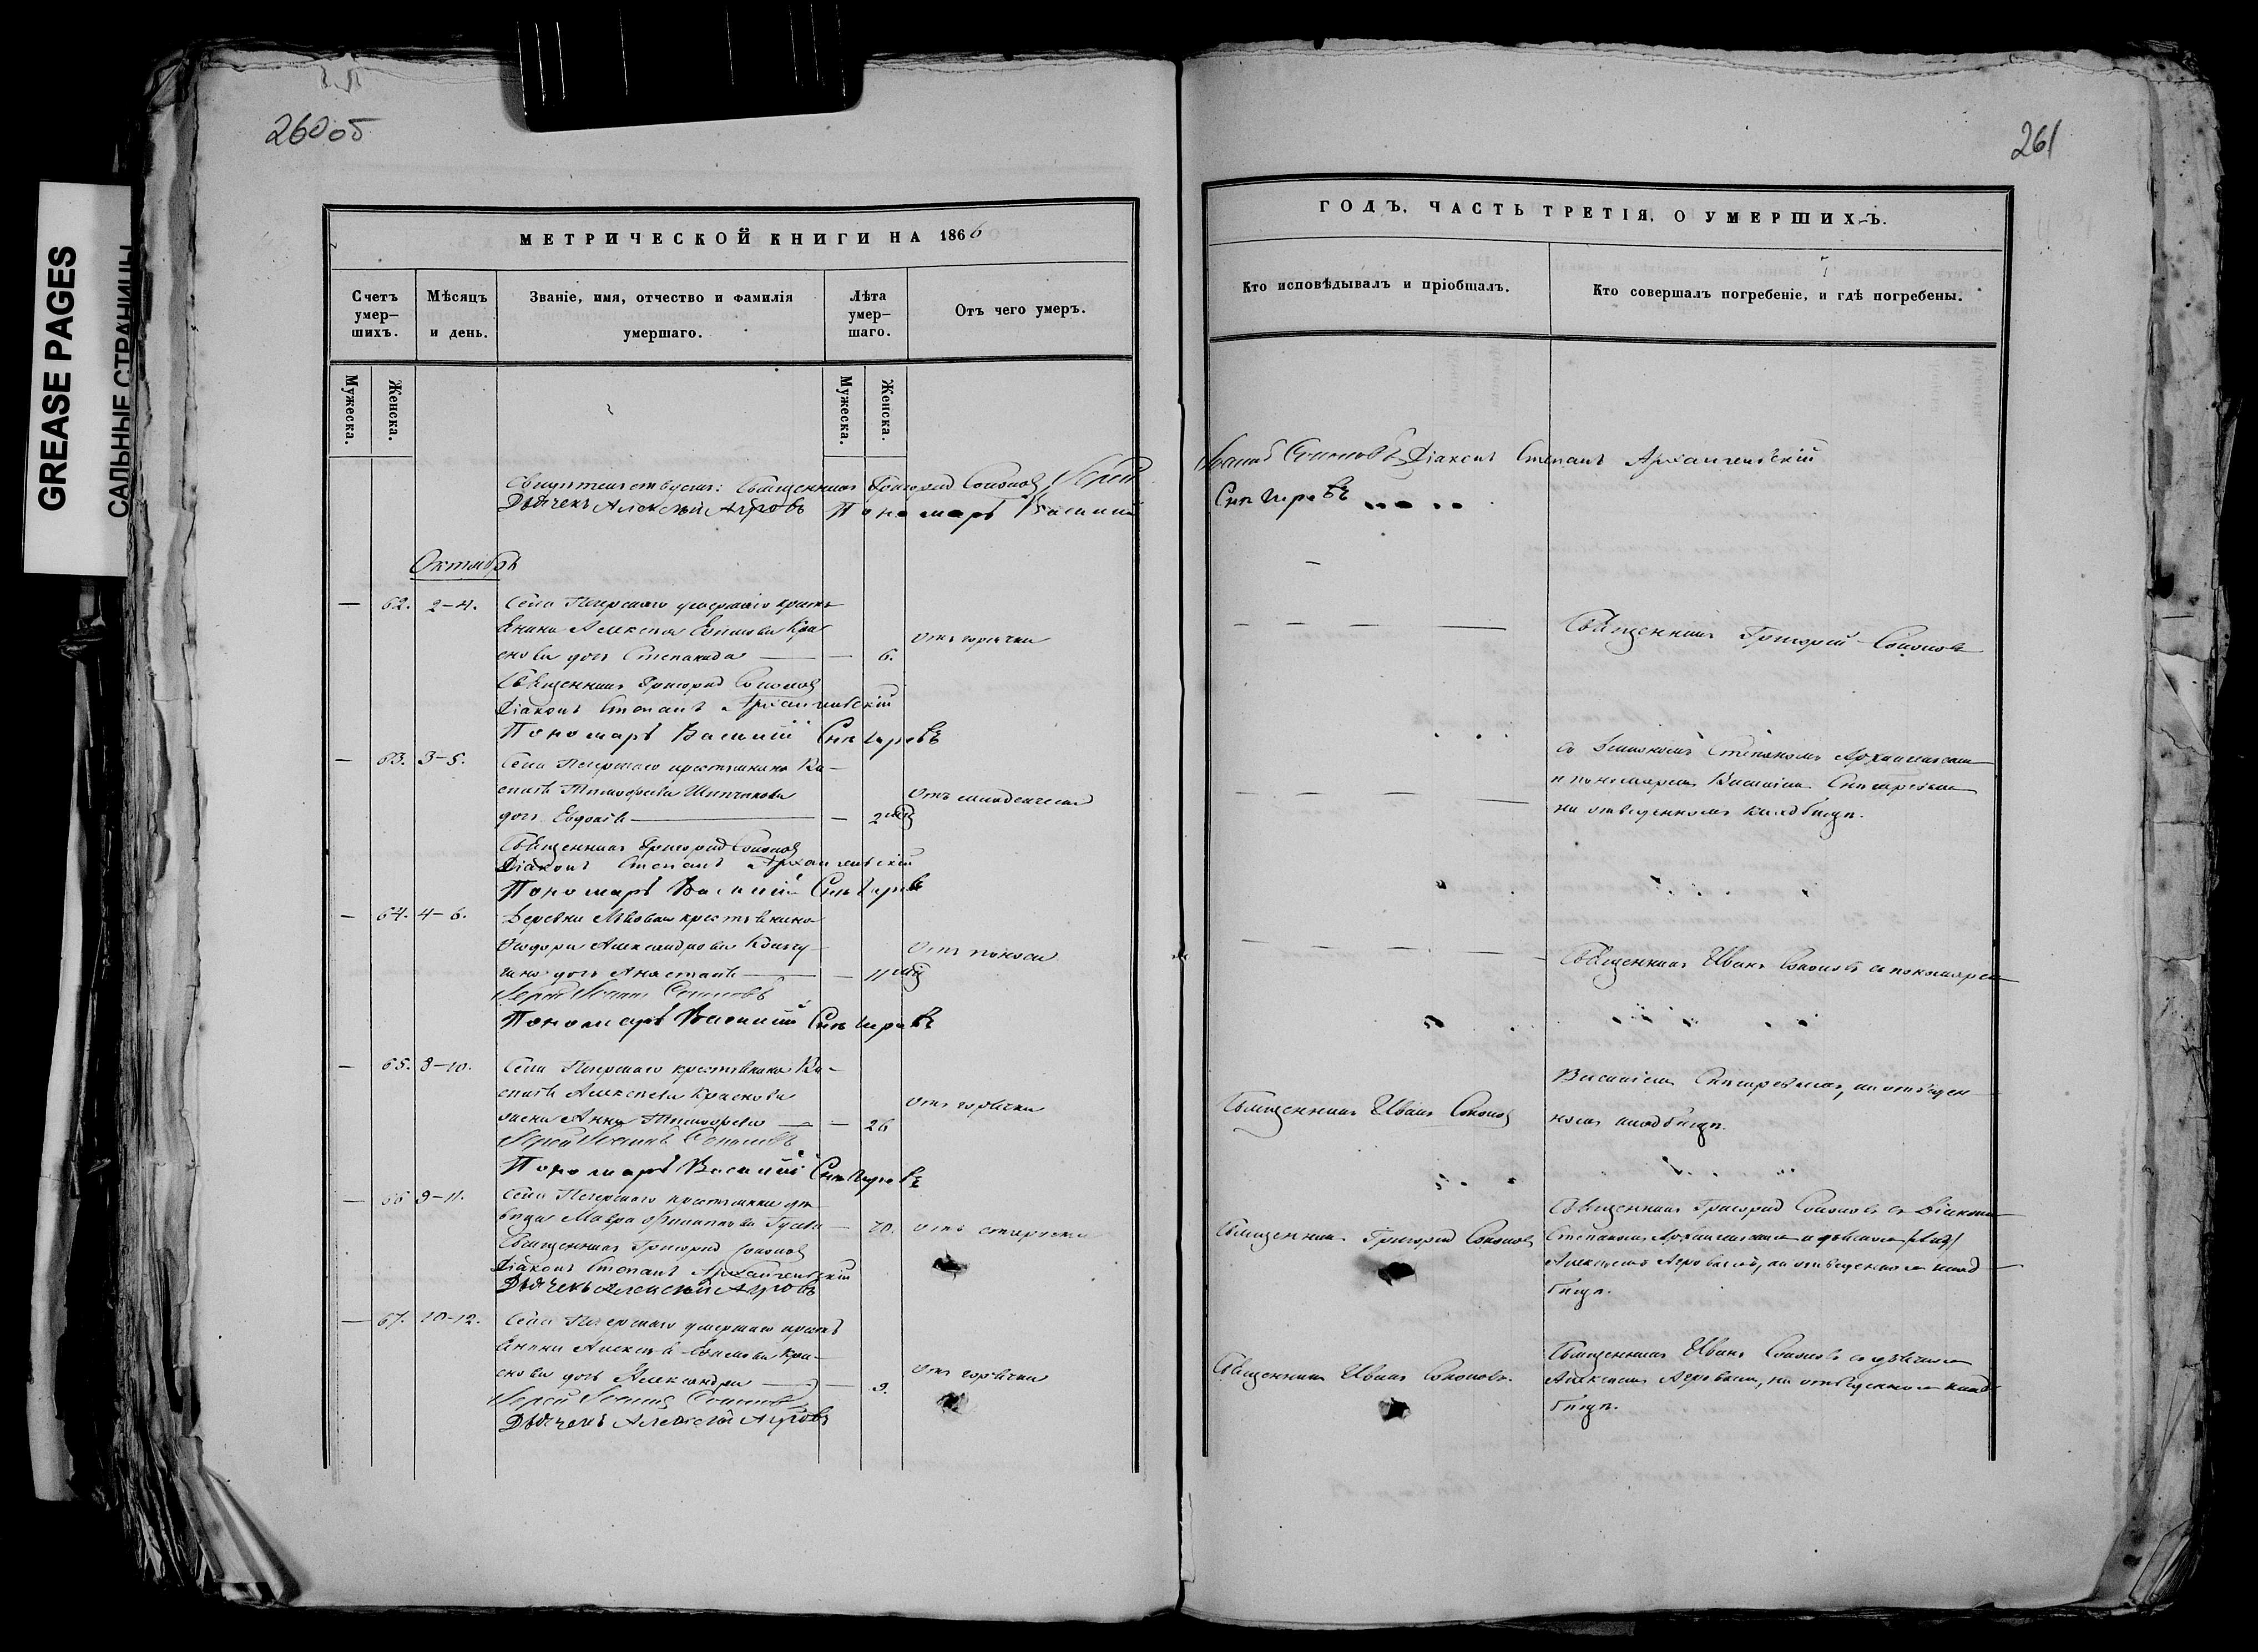 260об
261
GREASE PAGES
САЛЬНЫЕ СТРАНИЦЫ
МЕТРИЧЕСКОЙ КНИГИ НА 1866
Счетъ умер-шихъ.
Мѣсяцъ и день.
Званіе, имя, отчество и фамилія умершаго.
Лѣта умер-шаго.
Отъ чего умеръ.
Мужеска.
Женска.
Мужеска.
Женска.
Священникъ Григорій Соколовъ, Іерей
Дьячекъ Алексѣй Агровъ Пономарь Василий
Октябрь
— 62. 2-4. Села Печерскаго умершаго кресть
янина Алексѣя Ефимова Кра
снова дочь Степанида — — 6. Отъ горячки
Священникъ Григорій Соколовъ
Діаконъ Степанъ Архангельскій
Пономарь Василий Снѣгиревъ
— 63. 3-5. Села Печерскаго крестьянина Ва-
силія Тимофеева
дочь Евдокія — — 2 Отъ младенческой
Священникъ Григорій Соколовъ
Діаконъ Степанъ Архангельскій
Пономарь Василий Снѣгиревъ
— 64. 4-6. Деревни крестьянина
Ѳедора Александрова
дочь Анастасія — — 11 Отъ поноса
Іерей Іоаннъ Соколовъ
Пономарь Василий Снѣгиревъ
— 65. 8-10. Села Печерскаго крестьянина Ва-
силія Алексѣева Краснова
жена Анна Тимофеева — — 26 Отъ горячки
Іерей Іоаннъ Соколовъ
Пономарь Василий Снѣгиревъ
— 66 9-11. Села Печерскаго крестьянская дѣ
вица Мавра Филиппова — 70. Отъ старости
Священникъ Григорій Соколовъ
Діаконъ Степанъ Архангельскій
Дьячекъ Алексѣй Агровъ
— 67. 10-12. Села Печерскаго умершаго кресть
янина Алексѣя Ефимова Кра-
снова дочь Александра — — 9. Отъ горячки
Іерей Іоаннъ Соколовъ
Дьячекъ Алексѣй Агровъ
ГОДЪ, ЧАСТЬ ТРЕТІЯ, О УМЕРШИХЪ.
Кто исповѣдывалъ и пріобщалъ.
Кто совершалъ погребеніе, и гдѣ погребены.
Іоаннъ Соколовъ Діаконъ Степанъ Архангельскій
Снѣгиревъ
Священникъ Григорій Соколовъ
съ Діакономъ Степаномъ Архангельскимъ
и пономаремъ Василіемъ Снѣгиревымъ
на отведенномъ кладбищѣ.
Священникъ Иванъ Соколовъ съ пономаремъ
Священникъ Иванъ Соколовъ
Василіемъ Снѣгиревымъ, на отведен-
номъ кладбищѣ.
Священникъ Григорій Соколовъ
Священникъ Григорій Соколовъ съ Діакономъ
Степаномъ Архангельскимъ и дьячкомъ
Алексѣемъ Агровымъ, на отведенномъ клад-
бищѣ.
Священникъ Иванъ Соколовъ.
Священникъ Иванъ Соколовъ съ дьячкомъ
Алексѣемъ Агровымъ, на отведенномъ клад-
бищѣ.